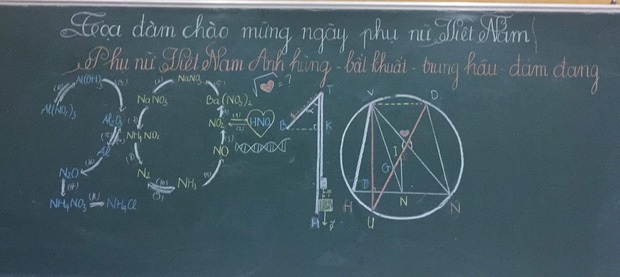 Tọa đàm chào mừng ngày phụ nữ Việt Nam!
Phụ nữ Việt Nam Anh hùng - bất khuất - trung hậu - đảm đang
Al(OH)3
Al(NO3)3
Al2O3
Al
N2O
NH4NO3
NH4Cl
NaNO3
NaNO3
NH4NO2
N2
NH3
NO
NO2
Ba(NO3)2
HNO3
= ?
T
B
K
V
D
I
G
H
U
N
N